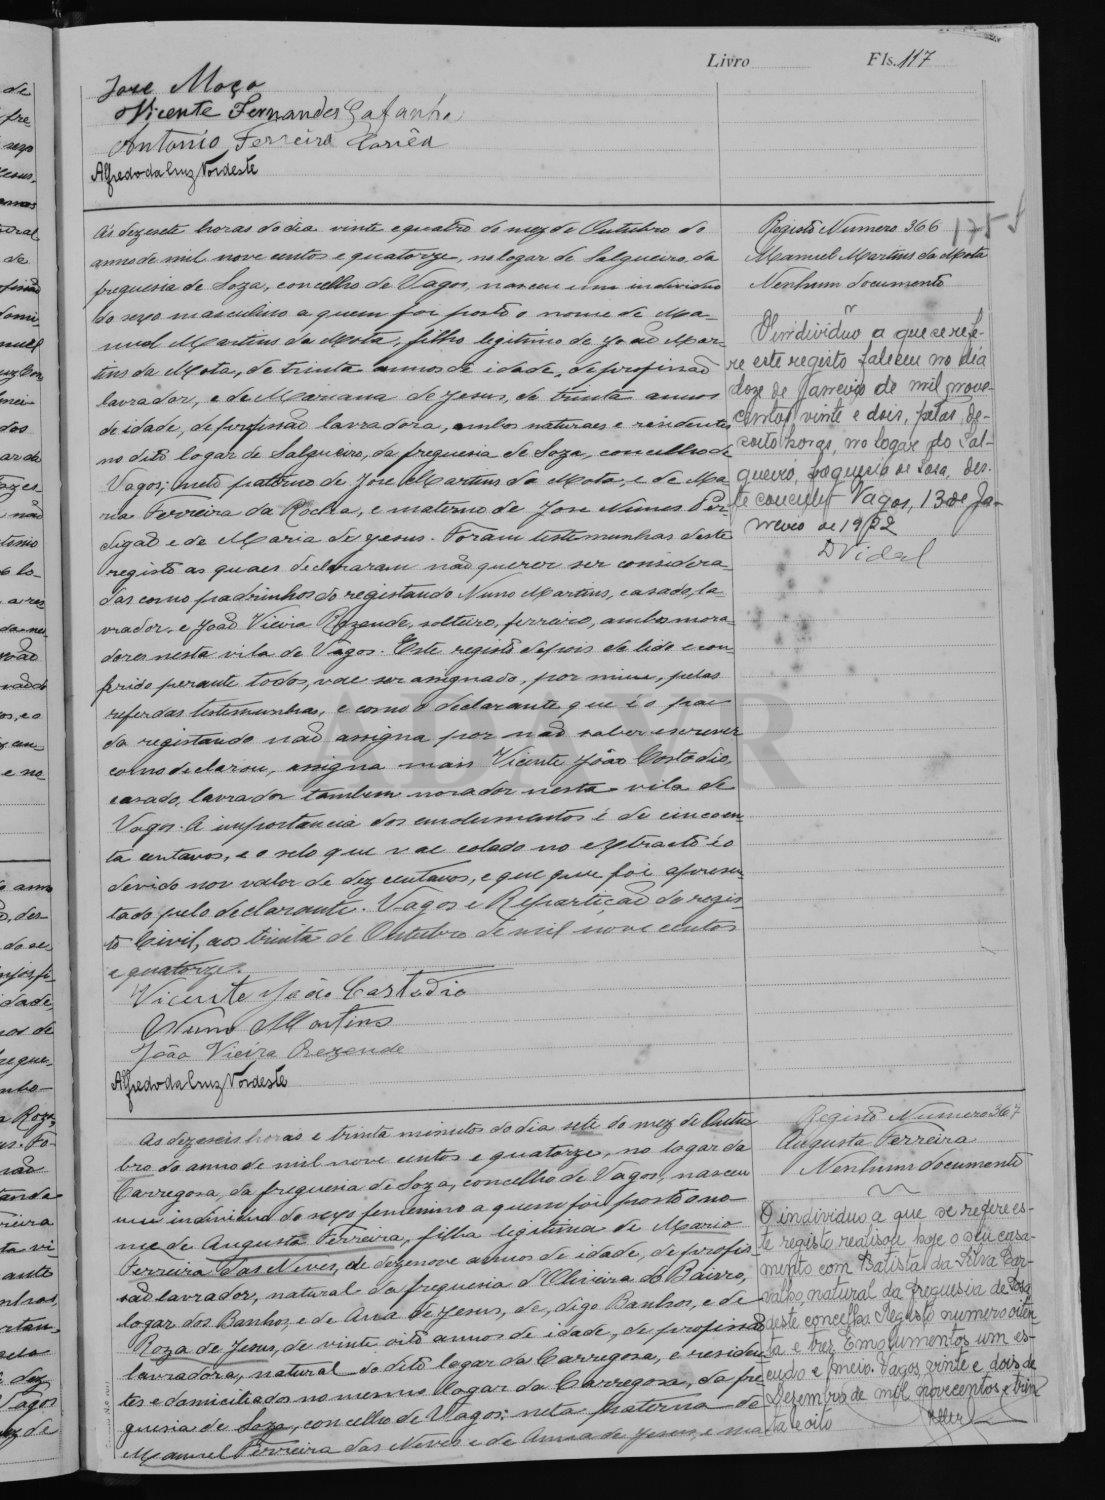 Livro Fls. 117
Jose Moço
Vicente Fernandes Gafanha
Antonio Ferreira Corrêa
Alfredo da Cruz Nordeste
Ás dezesete horas do dia vinte e quatro do mez de Outubro do
anno de mil nove centos e quatorze, no logar de Salgueiro, da
freguesia de Soza, concelho de Vagos, nasceu um individuo
do sexo masculino a quem foi posto o nome de Ma-
nuel Martins da Mota, filho legitimo de João Mar-
tins da Mota, de trinta annos de idade, de profissão
lavrador, e de Mariana de Jesus, de trinta annos
de idade, de profissão lavradora, ambos naturaes e residentes
no dito logar de Salgueiro, da freguesia de Soza, concelho de
Vagos; neto paterno de Jose Martins da Mota, e de Ma-
ria Ferreira da Rocha, e materno de Jose Nunes Per-
digão e de Maria de Jesus. Foram testemunhas deste
registo as quaes declararam não querer ser considera-
das como padrinhos do registando Nuno Martins, casado, la-
vrador, e João Vieira Rezende, solteiro, ferreiro, ambos mora-
dores nesta vila de Vagos. Este registo depois de lido e con-
ferido perante todos, vae ser assignado, por mim, pelas
referidas testemunhas, e como o declarante que é o pae
do registando não assigna por não saber escrever
como declarou, assigna mais Vicente João Costodio,
casado, lavrador tambem morador nesta vila de
Vagos. A importancia dos emolumentos é de cincoen-
ta centavos, e o selo que vae colado no extracto é o
devido no valor de dez centavos, e que que foi apresen-
tado pelo declarante. Vagos e Repartição do regis-
to Civil, aos trinta de Outubro de mil nove centos
e quatorze.
Vicente João Castudio
Nuno Martins
João Vieira Rezende
Alfredo da Cruz Nordeste
Registo Numero 366
175
Manuel Martins da Mota
Nenhum documento
O individuo a que se refe-
re este registo faleceu no dia
doze de Janeiro de mil nove-
centos vinte e dois, pelas de-
zoito horas, no logar do Sal-
gueiro, freguesia de Sosa, des-
te concelho Vagos, 13 de Ja-
neiro de 1922
DVidal
As dezeseis horas e trinta minutos do dia sete do mez de Outu-
bro do anno de mil nove centos e quatorze, no logar da
Carregosa, da freguesia de Soza, concelho de Vagos, nasceu
um individuo do sexo femenino a quem foi posto o no-
me de Augusta Ferreira, filha legitima de Mario
Ferreira das Neves, de dezenove annos de idade, de profis-
são lavrador, natural da freguesia d'Oliveira do Bairro,
logar dos Banhos, e de Ana de Jesus, de, digo Banhos, e de
Roza de Jesus, de vinte oito annos de idade, de profissão
lavradora, natural do dito logar da Carregosa, e residen-
tes e domiciliados no mesmo logar da Carregosa, da fre-
guesia de Soza, concelho de Vagos; neta paterna de
Manuel Ferreira das Neves e de Anna de Jesus, e ma-
Registo Numero 367
Augusta Ferreira
Nenhum documento
O individuo a que se refere es-
te registo realisou hoje o seu casa-
mento com Batista da Silva Car-
valho, natural da freguesia de Sosa
deste concelho Registo numero oiten-
ta e tres Emolumentos um es-
cudo e meio. Vagos, vinte e dois de
Dezembro de mil novecentos e trin-
ta e oito
ADAVR